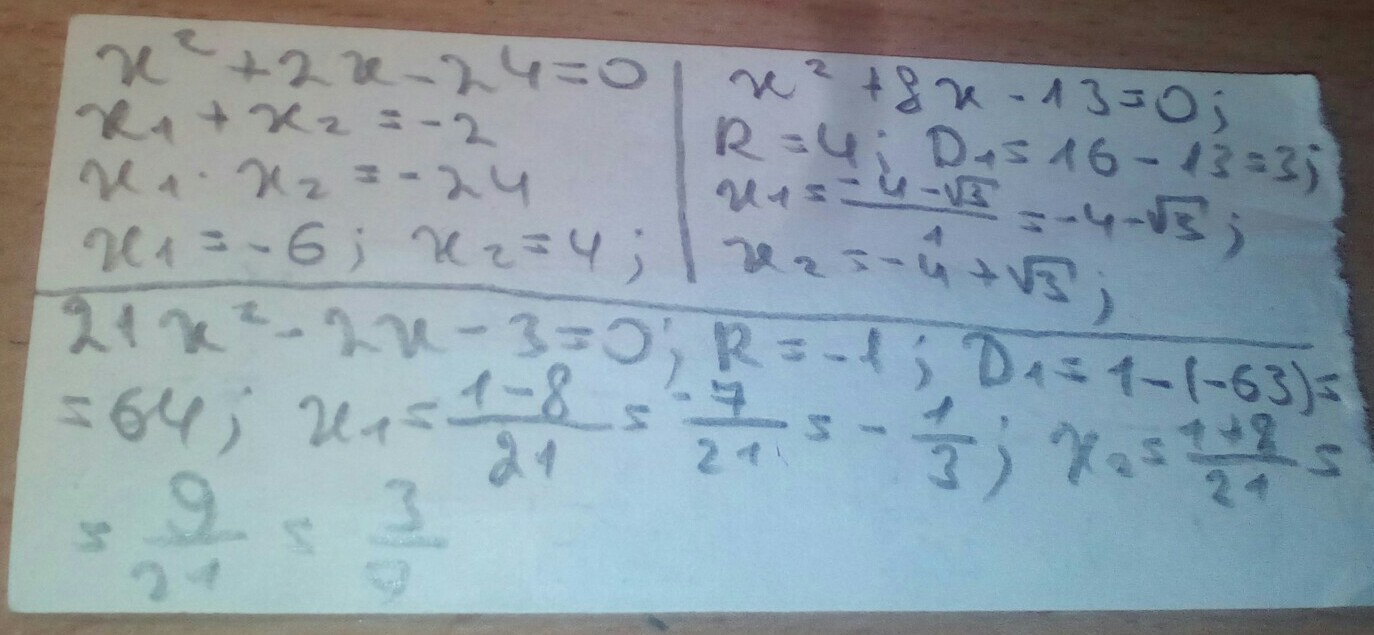 x² + 2x - 24 = 0
x₁ + x₂ = -2
x₁ · x₂ = -24
x₁ = -6; x₂ = 4;
x² + 8x - 13 = 0;
R = 4; D₁ = 16 - 13 = 3;
x₁ = (-4 - √3)/1 = -4 - √3;
x₂ = -4 + √3;
21x² - 2x - 3 = 0; R = -1; D₁ = 1 - (-63) =
= 64; x₁ = (1 - 8)/21 = -7/21 = -1/3; x₂ = (1 + 8)/21 =
= 9/21 = 3/7